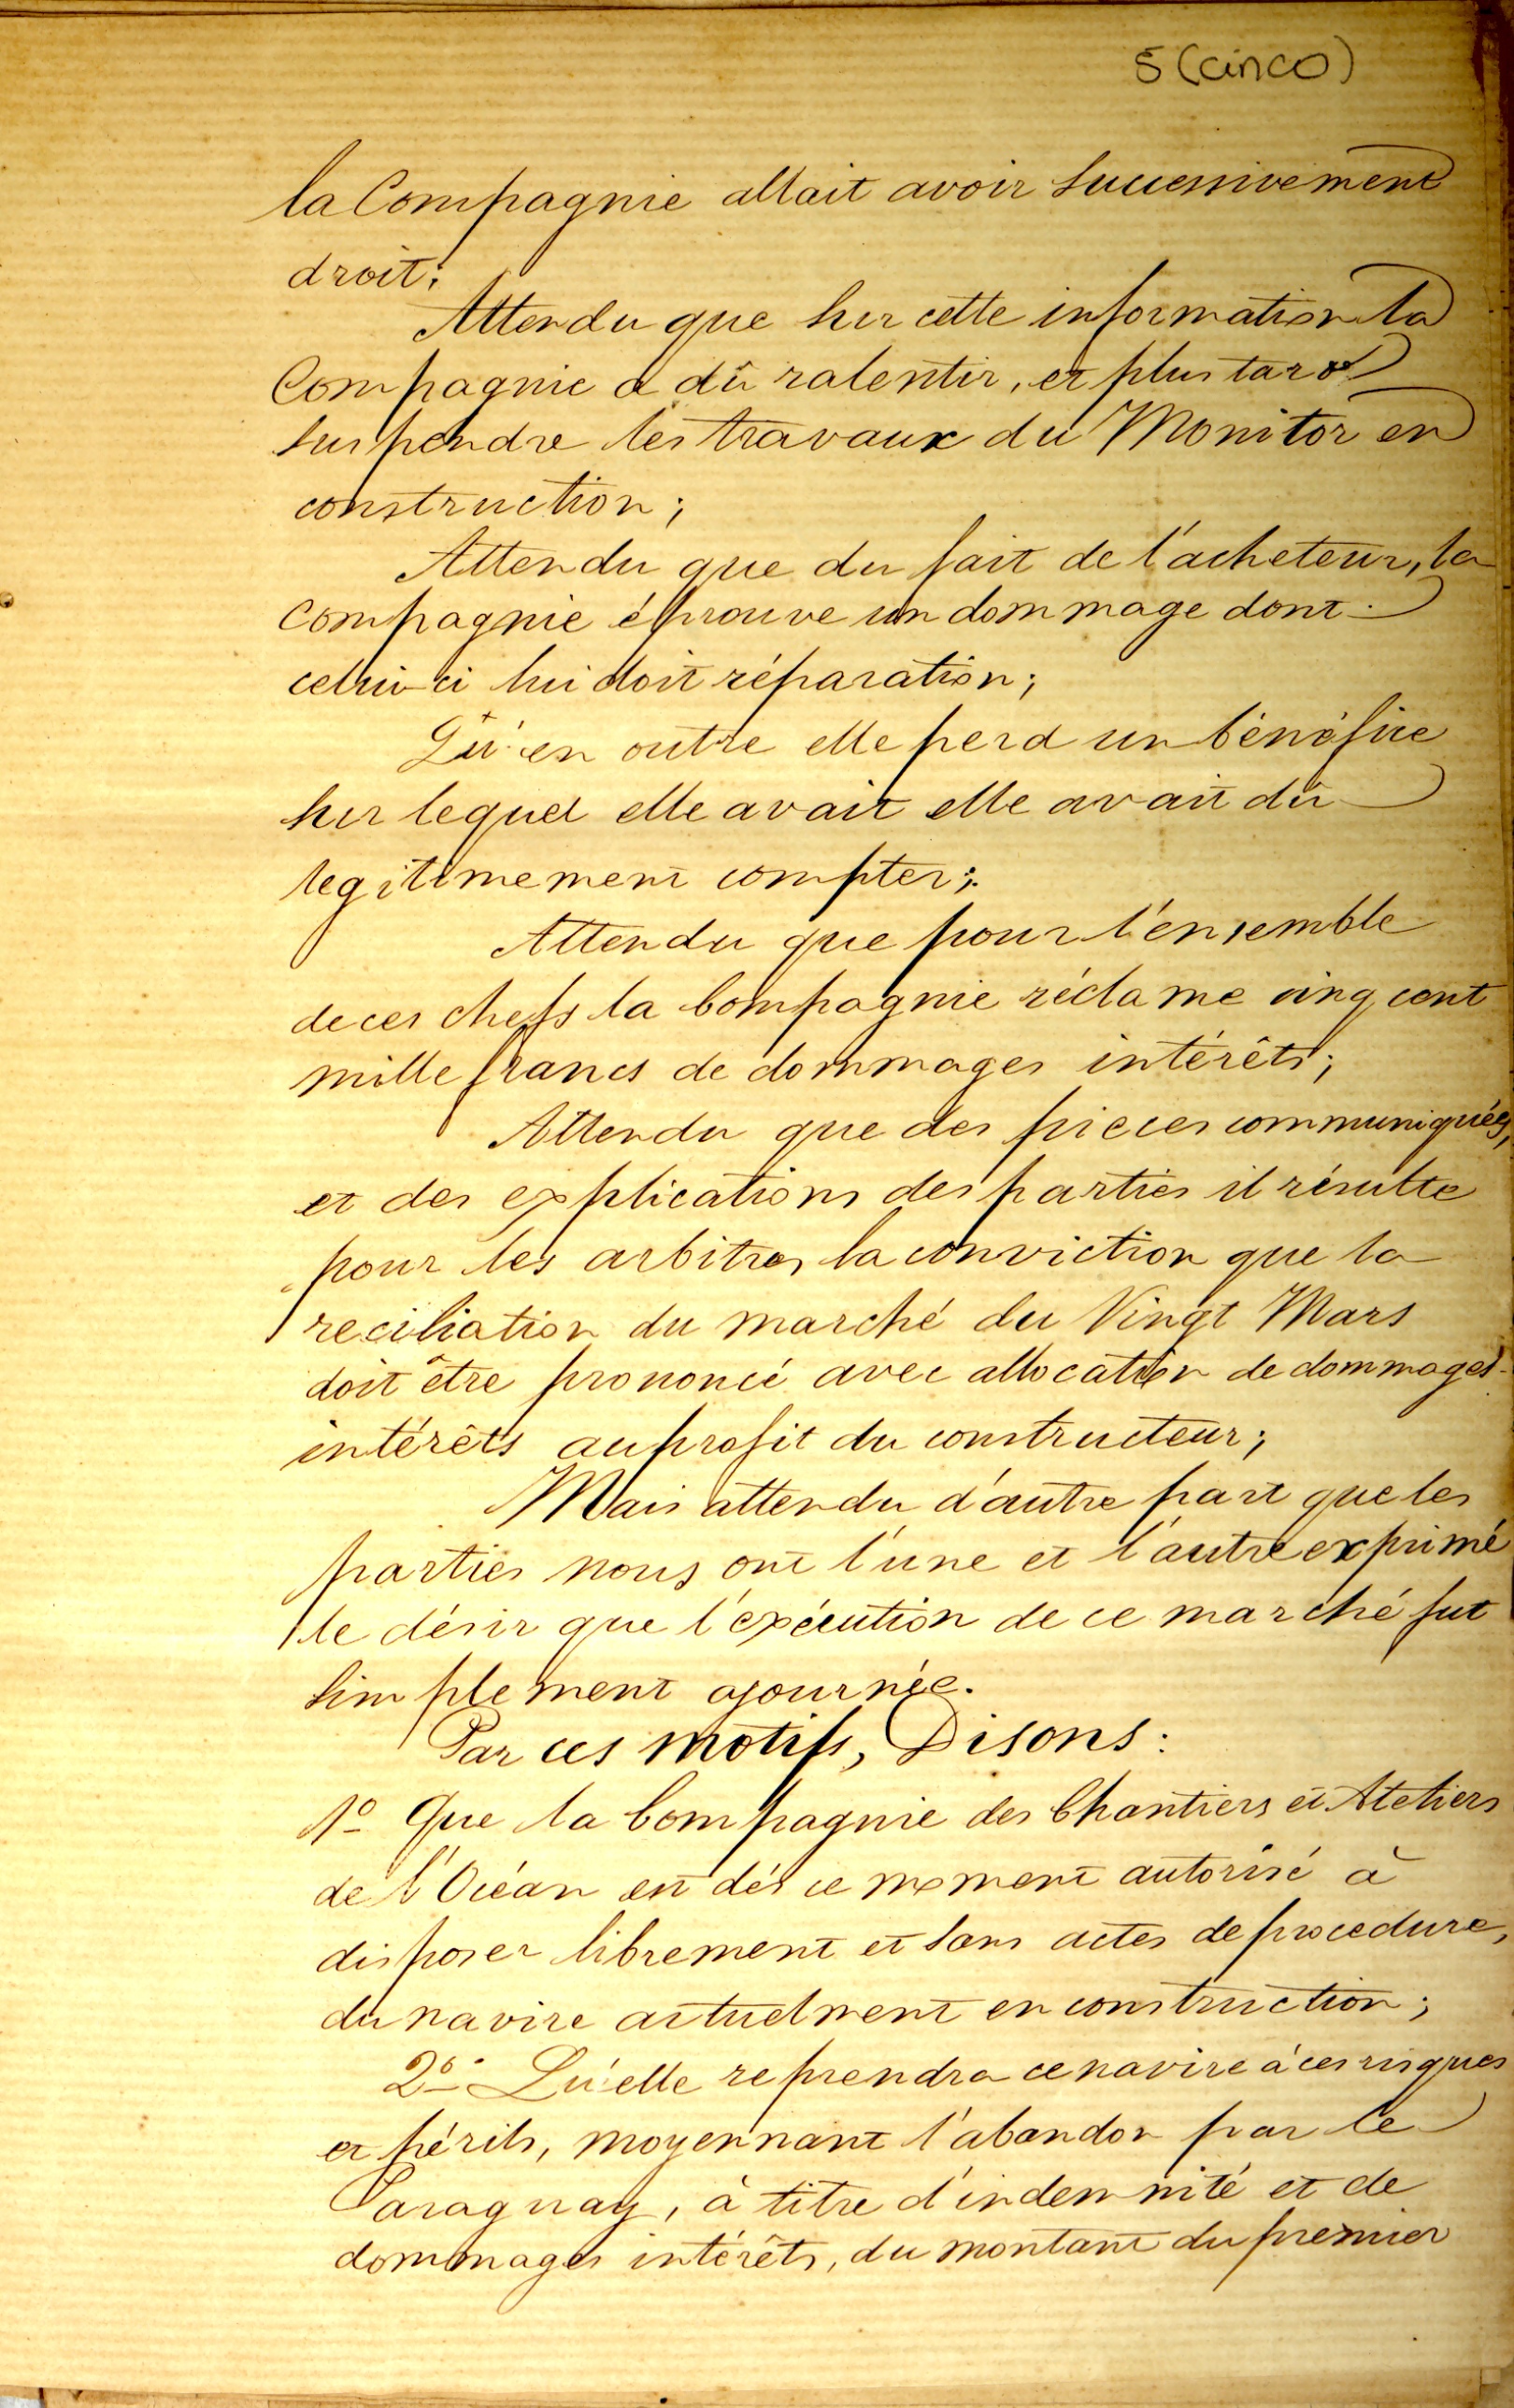 5 (cinco)
la Compagnie allait avoir successivement
droit;
Attendu que sur cette information la
Compagnie a dû ralentir, et plus tard
suspendre les travaux du Monitor en
construction;
Attendu que du fait de l'acheteur, la
Compagnie éprouve un dommage dont
celui-ci lui doit réparation;
Qu'en outre elle perd un bénéfice
sur lequel elle avait elle avait dû
legitimement compter;
Attendu que pour l'ensemble
de ces chefs la Compagnie réclame cinq cent
mille francs de dommages intérêts;
Attendu que des pieces communiquées,
et des explications des parties il résulte
pour les arbitres la conviction que la
reciliation du marché du Vingt Mars
doit être prononcé avec allocation de dommages-
intérêts au profit du constructeur;
Mais attendu d'autre part que les
parties nous ont l'une et l'autre exprimé
le désir que l'exécution de ce marché fut
simplement ajournée.
Par ces motifs, Disons:
1º Que la Compagnie des Chantiers et Ateliers
de l'Océan est dés ce moment autorisé à
disposer librement et sans actes de procedure,
du navire actuelment en construction;
2º Qu'elle reprendra ce navire à ces risques
et périls, moyennant l'abandon par le
Paraguay, à titre d'indemnité et de
dommages intérêts, du montant du premier